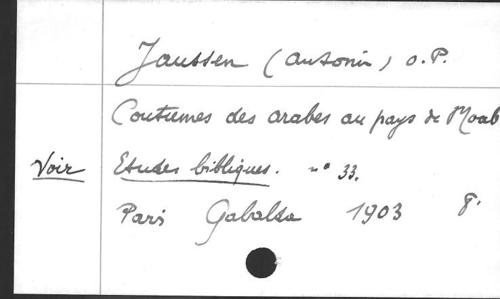 Jaussen (Antonin) O.P.
Coutumes des arabes au pays de Moab
Voir Etudes bibliques. n° 33.
Paris Gabalda 1903 8°.